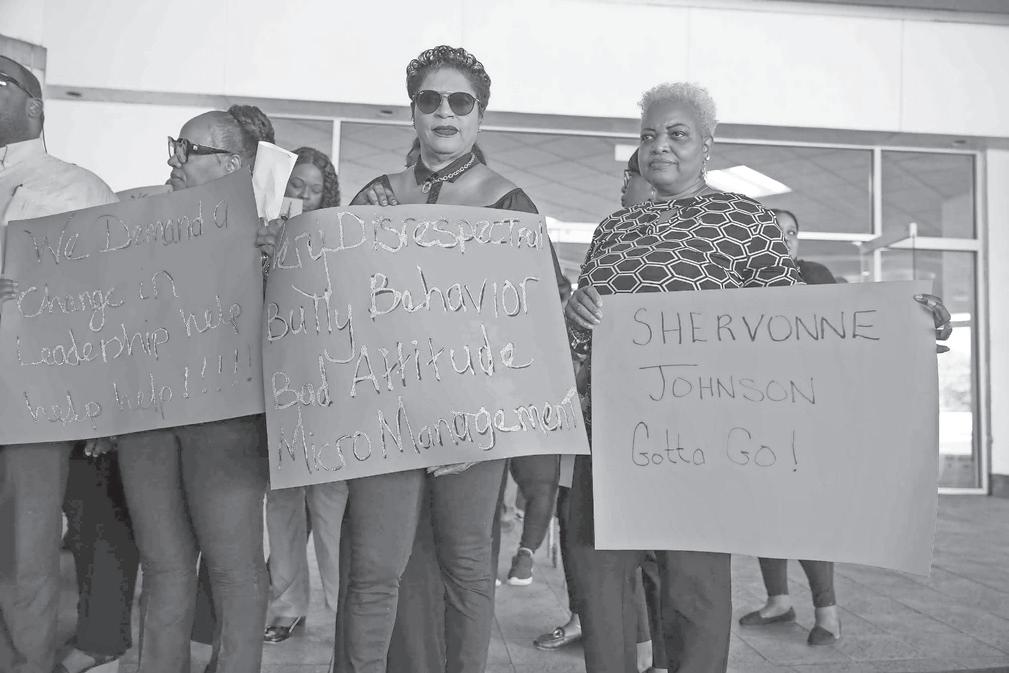 We Demand a
Change in
Leadership help
help help!!!!!
ery Disrespectral
Bully Behavior
Bad Attitude
Micro Management
SHERVONNE
JOHNSON
Gotta Go!